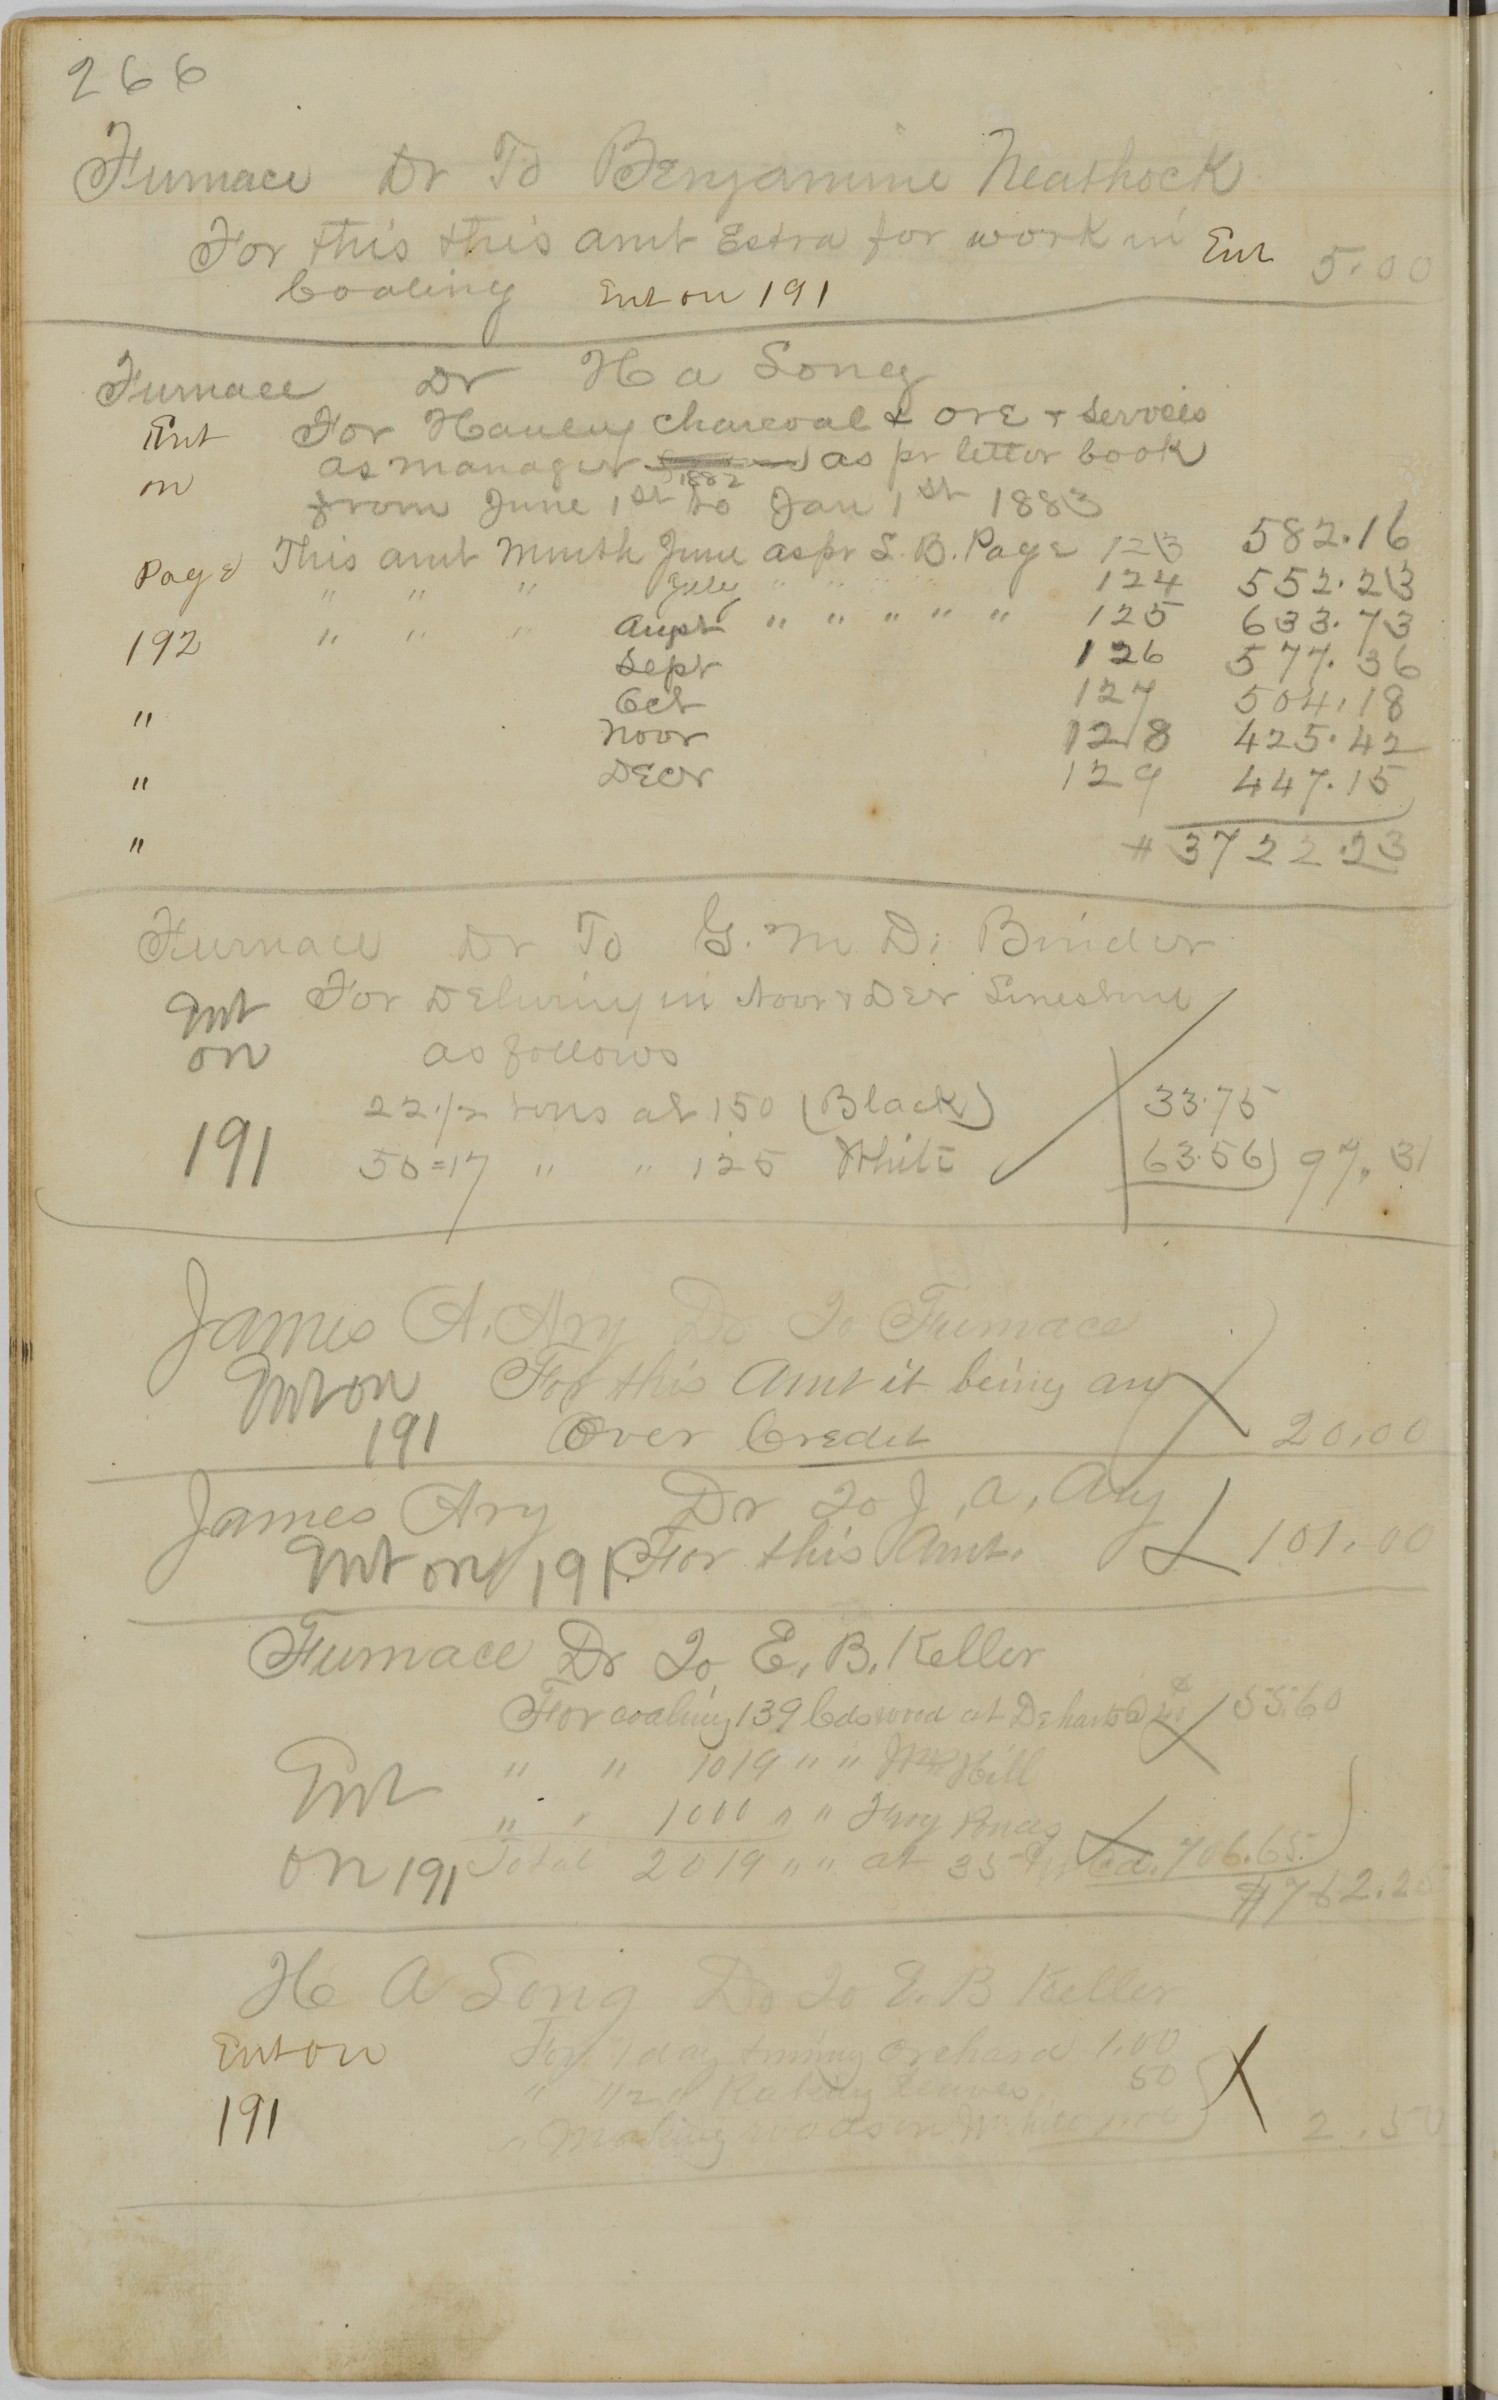 266
Furnace Dr To Benjamine Neashock
For this this amt Extra for work in Ent 5.00
Coaling Ent on 191
Furnace Dr H a Long
Ent For Hauling Charcoal & ore & Servces
on as manager as pr letter book
from June 1st 1882 to Jan 1st 1883
Page This amt Month June as pr L. B. Page 123 582.16
" " " July " " " " 124 552.23
192 " " " Augst " " " " " 125 633.73
Sept 126 577.36
" Oct 127 504.18
Novr 128 425.42
" Decr 129 447.15
" # 3722.23
Furnace Dr To G. M D. Binder
Ent For Delivring in Novr & Decr Limestone
on as follows
22 1/2 tons at 150 (Black) 33.75
191 50=17 " " 125 White 63.56 97.31
James A. Ary Dr To Furnace
Ent on For this Amt it being an
191 Over Credit 20.00
James Ary Dr To J. A. Ary
Ent on 191 For this Amt. 101.00
Furnace Dr To E. B. Keller
For coaling 139 Cds wood at Deharts @ 40 55.60
" " 1019 " " Hill
Ent " " 1000 " " Troy
on 191 Total 2019 " " at 35 Cd. 706.65
$762.25
H A Long Dr To E. B Keller
Ent on For 1 day triming Orchard 1.00
" 1/2 " Raking leaves 50
191 " Making roads on 2.50